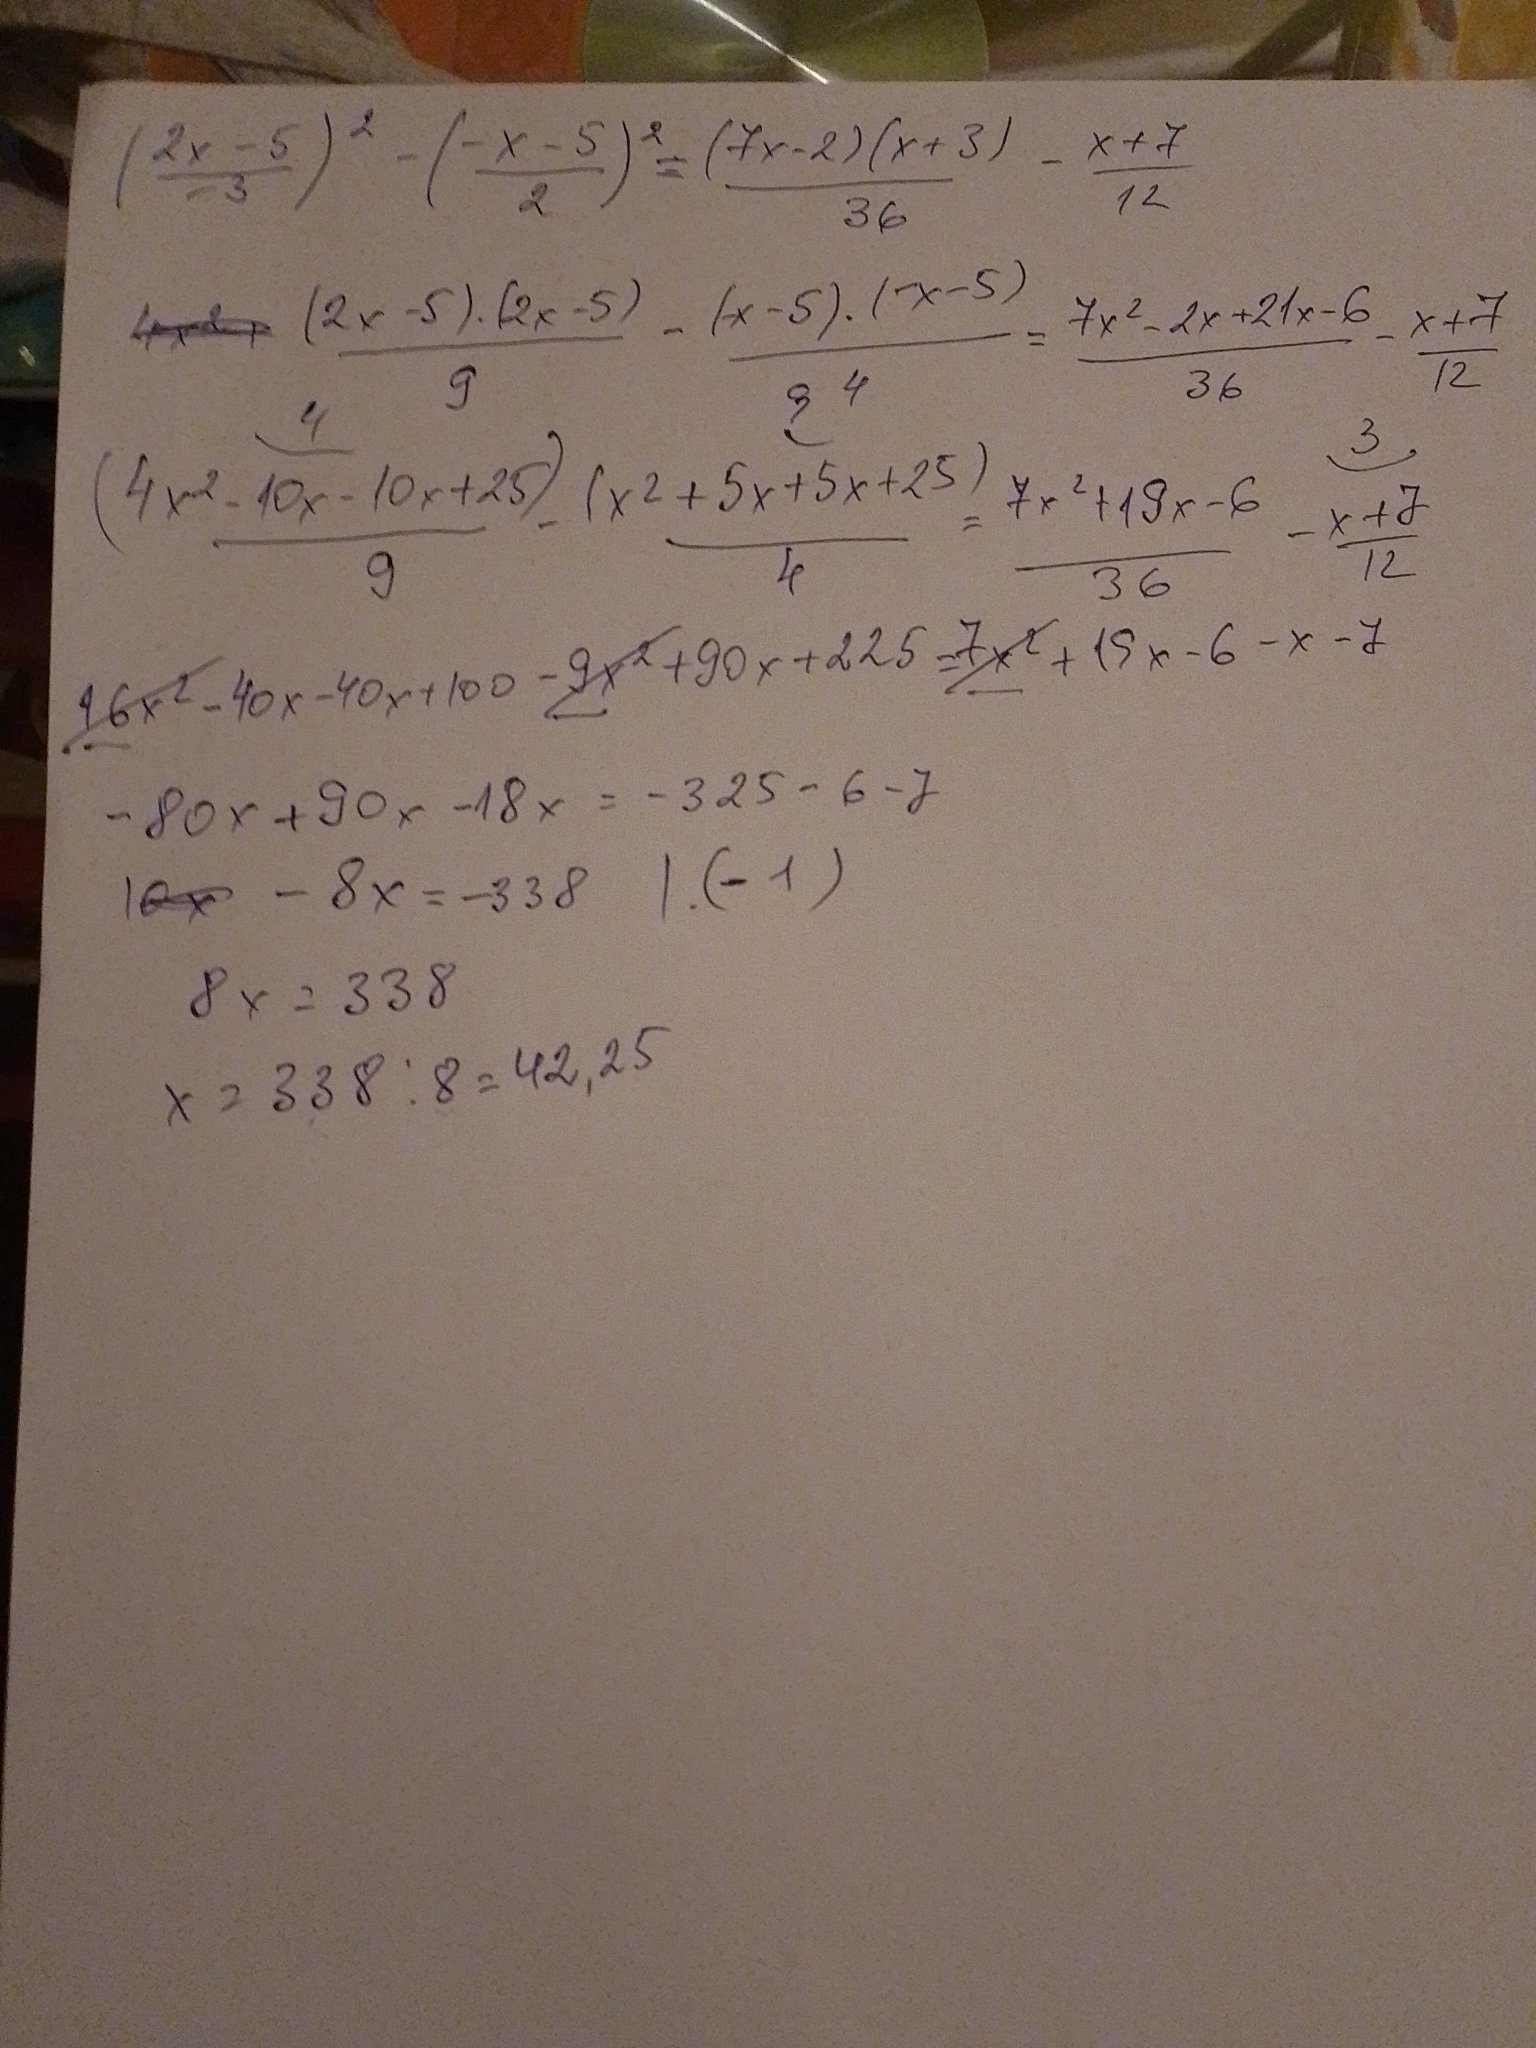 (2x-5/-3)² - (-x-5/2)² = (7x-2)(x+3)/36 - x+7/12
4x²+ (2x-5).(2x-5)/9 - (-x-5).(-x-5)/4 = 7x²-2x+21x-6/36 - x+7/12
4 9 3
(4x²-10x-10x+25)/9 - (x²+5x+5x+25)/4 = 7x²+19x-6/36 - x+7/12
16x²-40x-40x+100-9x²+90x+225=7x²+19x-6-x-7
-80x+90x-18x=-325-6-7
10x -8x=-338 |.(-1)
8x=338
x=338:8=42,25